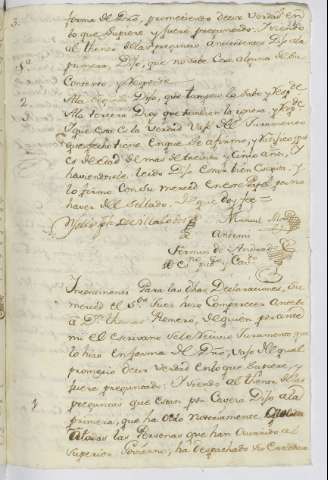 forma de Dro, prometiendo decir verdad en
lo que supiere y fuere preguntado. Y siendo
al thenor delas preguntas antecedentes Dijo ala
primera, Dijo, que no sabe cosa alguna de su
Contexto y Responde
2 Ala segunda Dijo, que tampoco lo sabe y Resp.de
3 Ala tercera Dijo que tambien la ignora y Resp.de
y que esta es la verdad vajo del Juramento
que fecho tiene en que se afirmo, y ratifico, que
es de edad de mas de treinta, y cinco años, y
haviendosele leido Dijo estar bien escrita, y
lo firmo con su merced en este Papel por no
haver del Sellado, de que doy fee
Manuel
Antemi
Fermin de Andrad
es.no pu.co y Cav.do
Yncontinenti Para las dhas Declaraciones, su
merced el S.or Juez hizo Comparecer Antesi
a D.n Thomas Romero, de quien por ante
mi el Escrivano se le Recivio Juramento que
lo hizo en forma de Dro, vajo del qual
prometio decir verdad en lo que supiere, y
fuere preguntado; Y siendo al thenor delas
preguntas que estan por Cavera Dijo ala
1 primera, que ha oido notoriamente
a todas las Personas que han ocurrido al
Superior Govierno, ha despachado